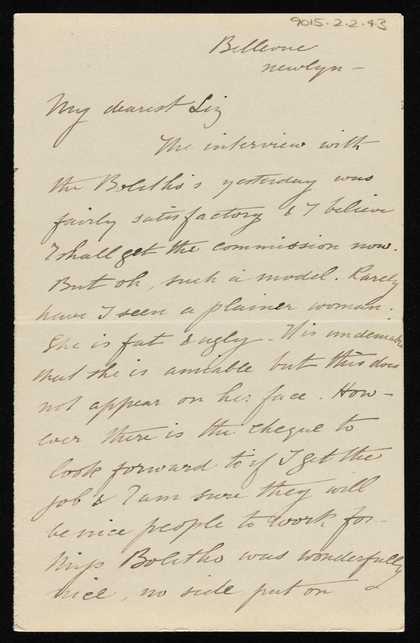 9015-2-2-43
Bellevue
Newlyn -
My dearest Liz
The interview with
the Bolitho's yesterday was
fairly satisfactory & I believe
I shall get the commission now.
But oh, such a model. Rarely
have I seen a plainer woman.
She is fat & ugly - It is undeniable
that she is amiable but this does
not appear on her face. How-
ever there is the cheque to
look forward to if I get the
job & I am sure they will
be nice people to work for -
Miss Bolitho was wonderfully
nice, no side put on